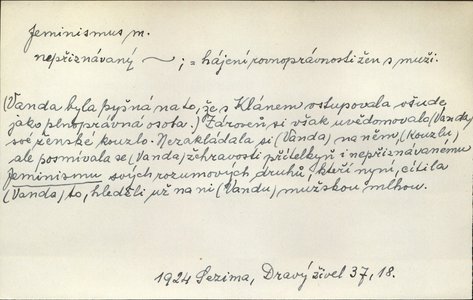 feminismus m.
nepřiznávaný ~ ; = hájení rovnoprávnosti žen s muži.
(Vanda byla pyšná na to, že s Klánem vstupovala všude
jako plnoprávná osoba.) Zároveň si však uvědomovala (Vanda)
své ženské kouzlo. Nezakládala si (Vanda) na něm, (kouzlu)
ale posmívala se (Vanda) zchravosti přítelkyň i nepřiznávanému
feminismu svých rozumových druhů, kteří nyní, cítila
(Vanda) to, hleděli už na ni (Vandu) mužskou mlhou.
1924 Sezima, Dravý živel 37, 18.